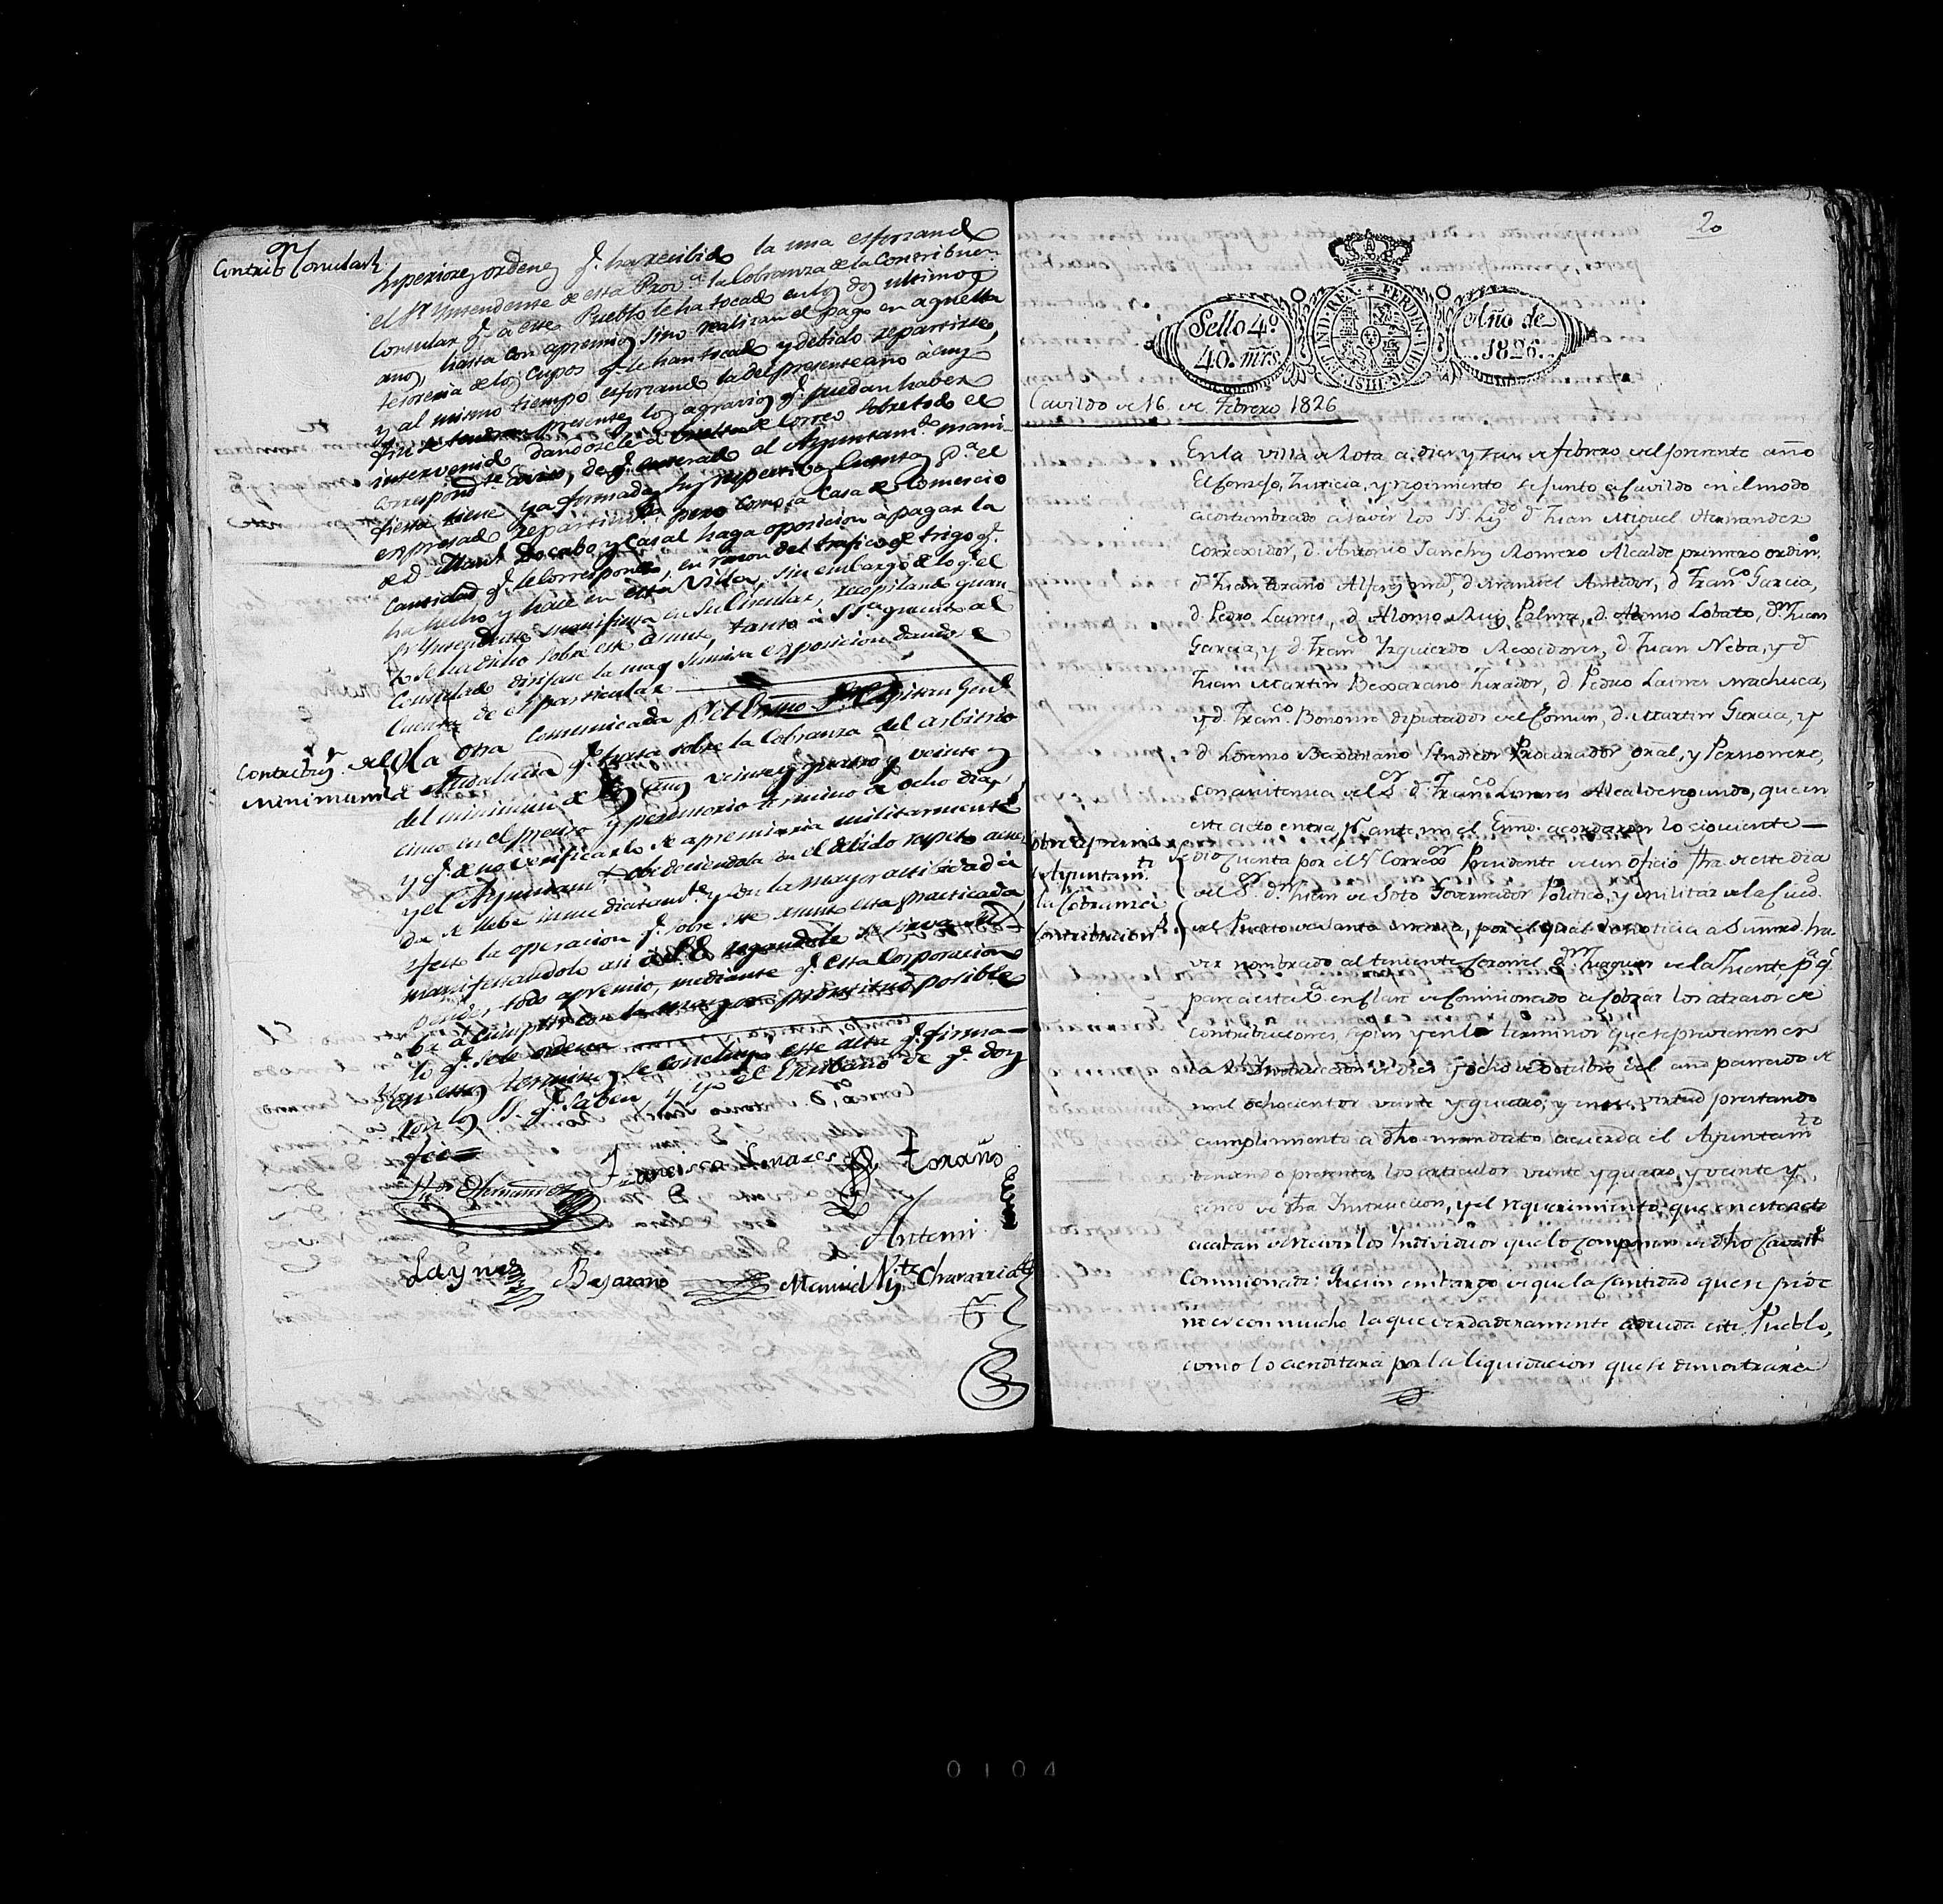 Contrib.on Consular
Superiores ordenes q.e ha recibido la una esforzand.
el S.r Yntendente de esta Prov.a la Cobranza de la Contribuc.on
Consular q.e a este Pueblo le ha tocado en los dos ultimos
años, hasta con apremios sino realizan el pago en aquella
tesoreria de los cupos q.e le han tocado y debido repartirse,
y al mismo tiempo esforzando la del presente año à cuyo
fin se tendran presentes los agravios q.e puedan haber
intervenido dandosele a buelta de Correo sobre todo el
correspond.te aviso, de q.e enterado el Ayuntam.to mani-
fiesta tiene ya formadas sus respectivas Cuentas p.a el
expresado repartim.to pero como la Casa de Comercio
de D. y Casal haga oposicion à pagar la
Cantidad q.e le corresponde, en razon del trafico de trigo q.e
ha hecho y hace en esta Villa, sin embargo de lo q.e el
S.r Yntendente manifiesta en su Circular, recopilando quan-
to se ha dicho sobre este asunto, tanto à S.S.a quanto al
Consulado dirijase la mas sumisa exposicion dandose
Cuenta de el particular
Contrib.on del
minimum
La otra comunicada p.r el Exmo S.r Capitan Gen.l
de Andalucia q.e trata sobre la Cobranza del arbitrio
del minimun de los años veinte y quatro y veinte y
cinco en el preciso y perentorio termino de ocho dias
y q.e de no verificarlo se apremiaria militarmente
y el Ayuntam.to obedeciendola con el debido respeto acuer-
da se llebe inmediatam.te y con la mayor actividad à
efecto la operacion q.e sobre este asunto esta practicada
manifestandolo asi à S.E. rogandole se sirva sus-
pender todo apremio, mediante q.e esta Corporacion
ba à cumplir con la mayor prontitud posible
lo q.e se le ordena
Y en estos terminos se concluyó este acta q.e firma-
ron los SS. q.e saben, y yo el Escribano de q.e doy
fee=
Hernandez Francisco Linares Toraño
Antemi
Laynes Bejarano Manuel Chavarria
20
Sello 4.º
40. mrs.
FERDIN. VII. D. G. HISP. ET IND. REX
Año de
1826.
Cavildo de 16 de Febrero 1826
En la Villa de Rota a diez y seis de febrero del presente año
El Consejo, Justicia, y regimiento se junto a Cavildo en el modo
acostumbrado a saver los SS. Ly.do d.n Juan Miguel Hernandez
Correxidor, d. Antonio Sanchez Romero Alcalde primero ordin.o
d.n Juan Toraño Alferez m.or, d. Manuel , d. Fran.co Garcia,
d. Pedro Laines, d. Alonso Ruiz Palma, d. Alonso Lobato, d.n Juan
Garcia, y d. Fran.co Yzquierdo Rexidores, d. Juan Neba, y d.
Juan Martin Bexarano Jurados, d. Pedro Laines Machuca,
y d. Fran.co Bonomo diputados del Comun, d. Martin Garcia, y
d. Lorenzo Bexarano Sindicos Procurador gral, y Personero,
con asistencia del S.or d. Fran.co Linares Alcalde segundo, que en
este acto entra p.r ante mi el Esno. acordaron lo siguiente
Sobre apremio
al Ayuntam.to
la Cobranza
Contribucion.s
Se dio quenta por el S.r Correx.or Presidente de un oficio fha. de este dia
del S.or d.n Juan de Soto Governador Politico, y militar de la Ciud.d
del Puerto de Santa Maria, por el qual da noticia a Su mrd. ha-
ver nombrado al teniente Coronel d.n Juaquin de la Fuente p.a q.e
pase a esta V.a en clase de Comisionado a cobrar los atrasos de
contribuciones, segun y en los terminos que se previenen en
la Rl. Ynstruccion de diez y ocho de Octubre del año pasado de
mil ochocientos veinte y quatro; y en su virtud prestando
cumplimiento a dho mandato acuerda el Ayuntam.to
teniendo presentes los articulos veinte y quatro, y veinte y
cinco de dha Instruccion, y el requerimiento que en este acto
acaban de recivir los Individuos que lo componen de dho Cavall.o
Comisionado: Que sin embargo de que la Cantidad que se pide
no es con mucho la que verdaderamente adeuda este Pueblo,
como lo acreditará por la liquidacion que se demostrará
0104